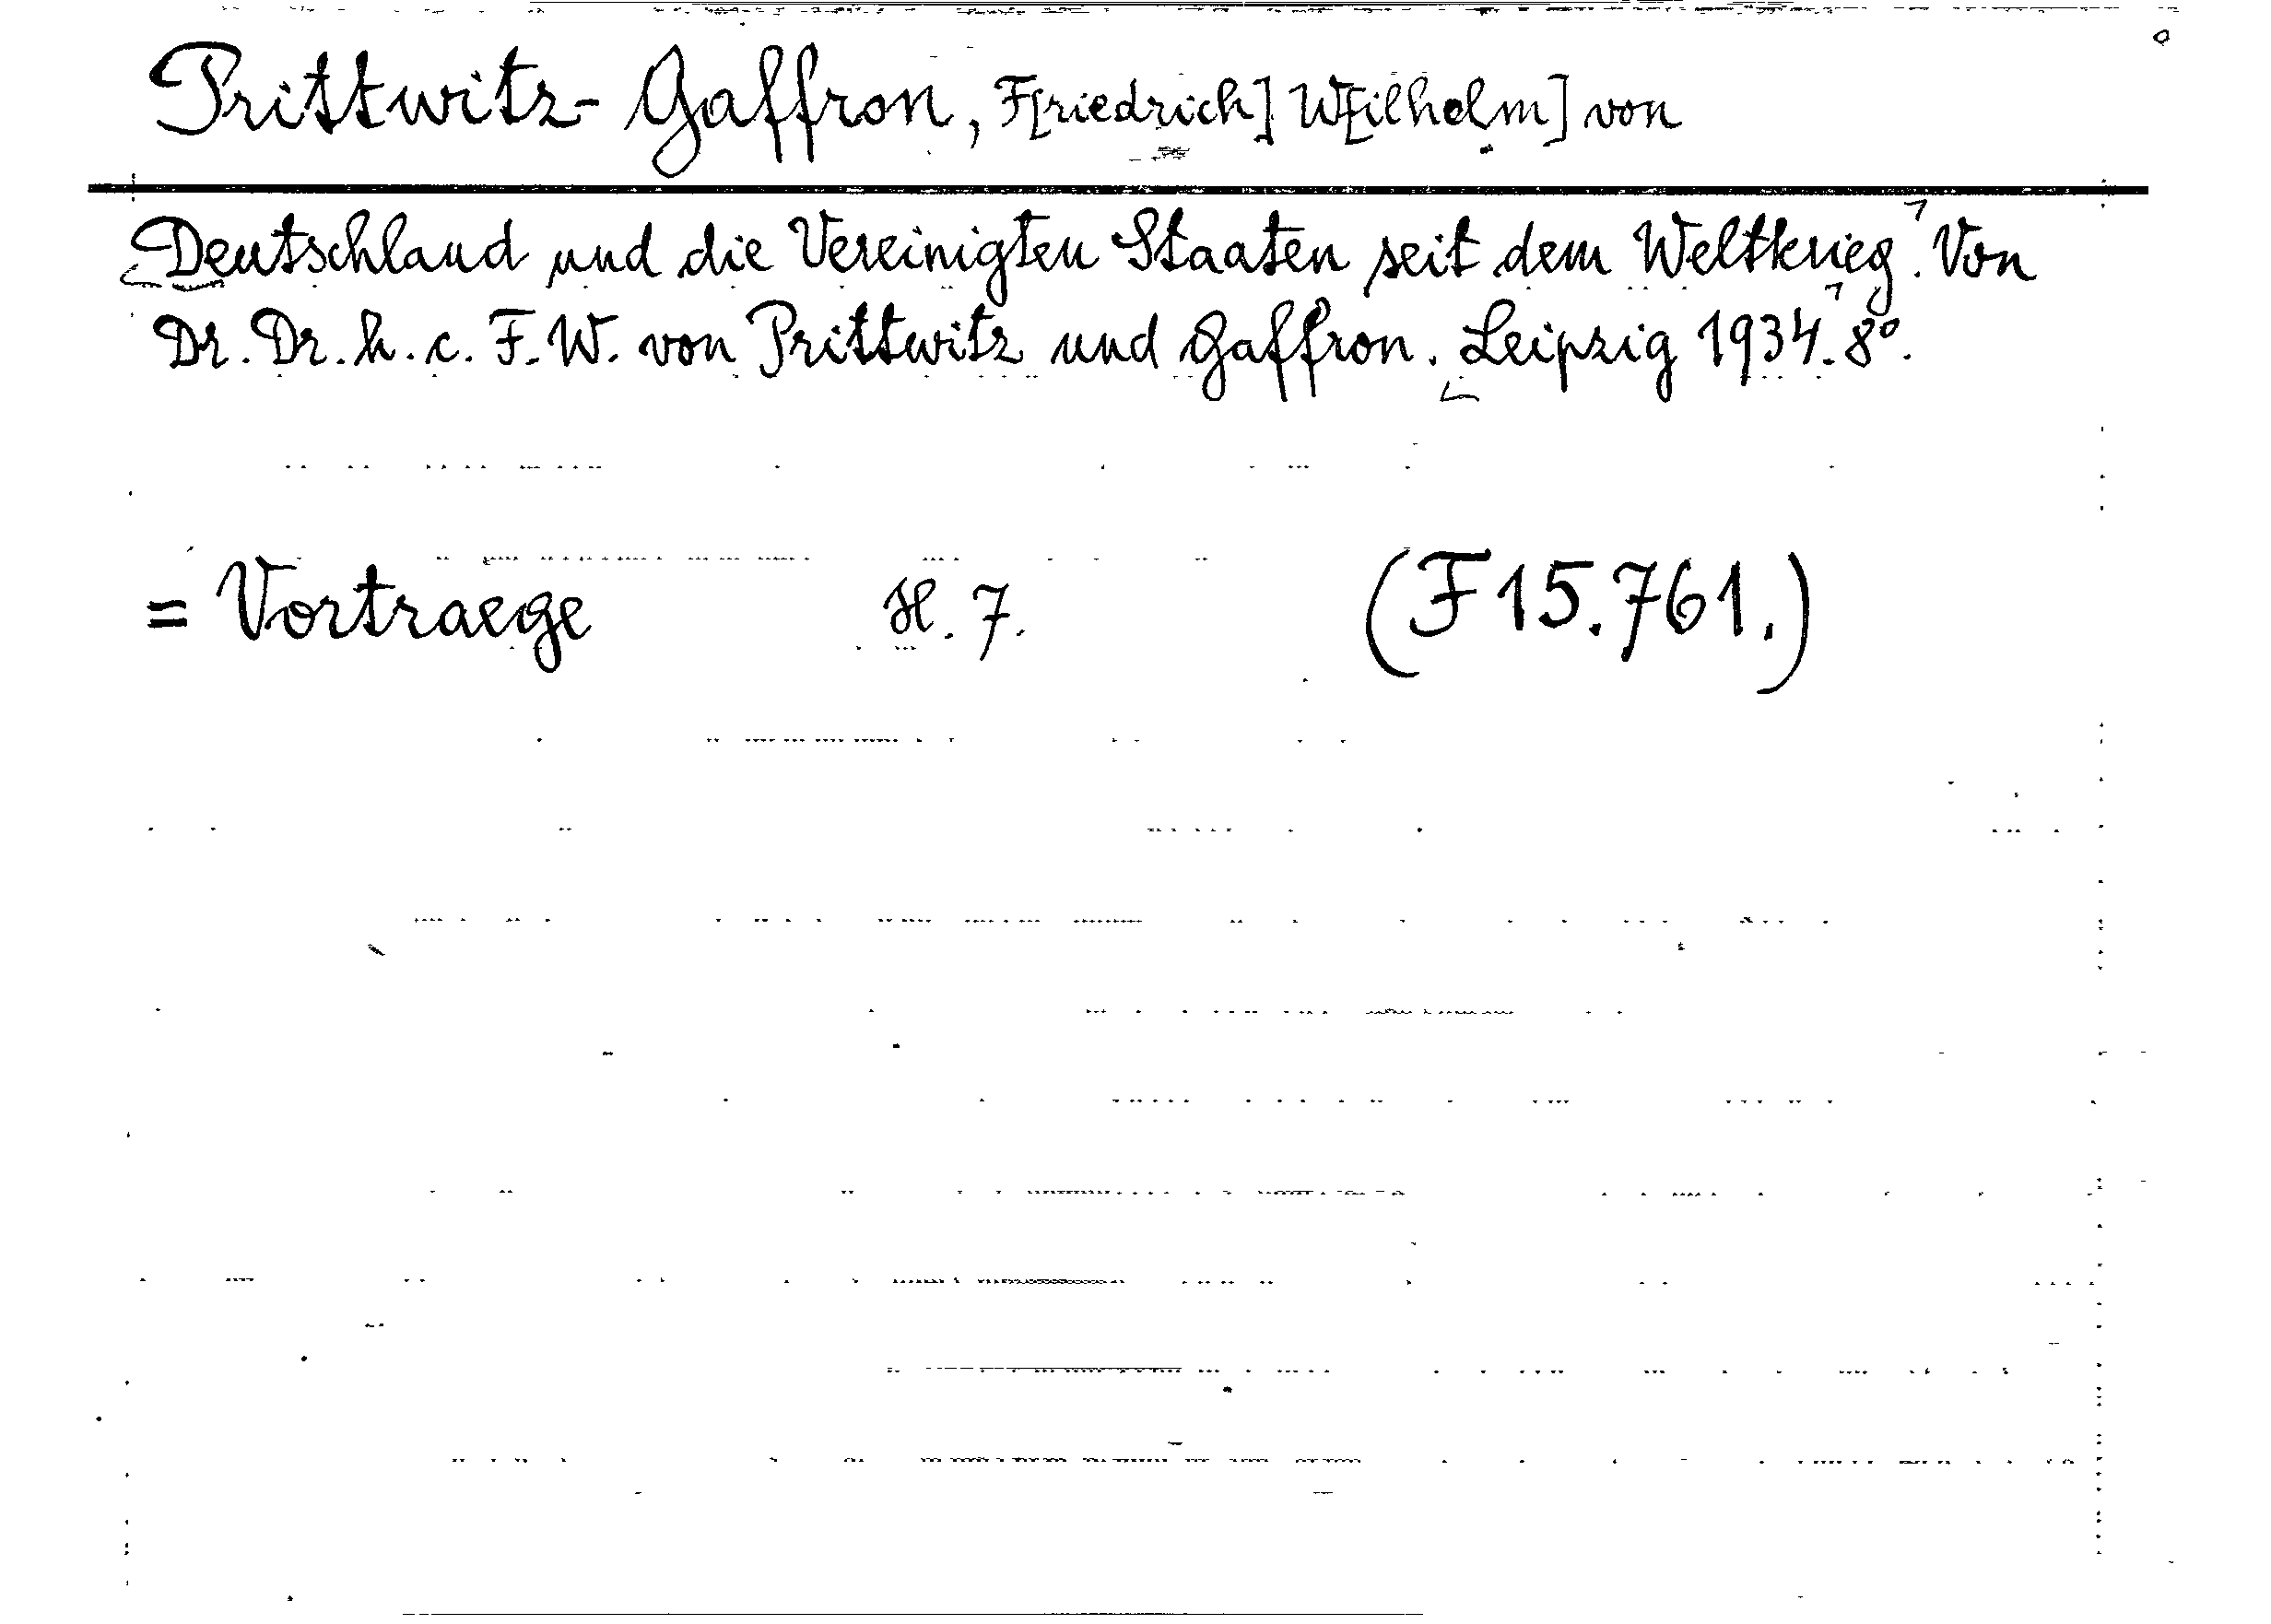 Prittwitz-Gaffron, F[riedrich] W[ilhelm] von
Deutschland und die Vereinigten Staaten seit dem Weltkrieg. Von
Dr. Dr. h. c. F. W. von Prittwitz und Gaffron. Leipzig 1934. 8°.
= Vortraege H. 7. (F 15.761.)